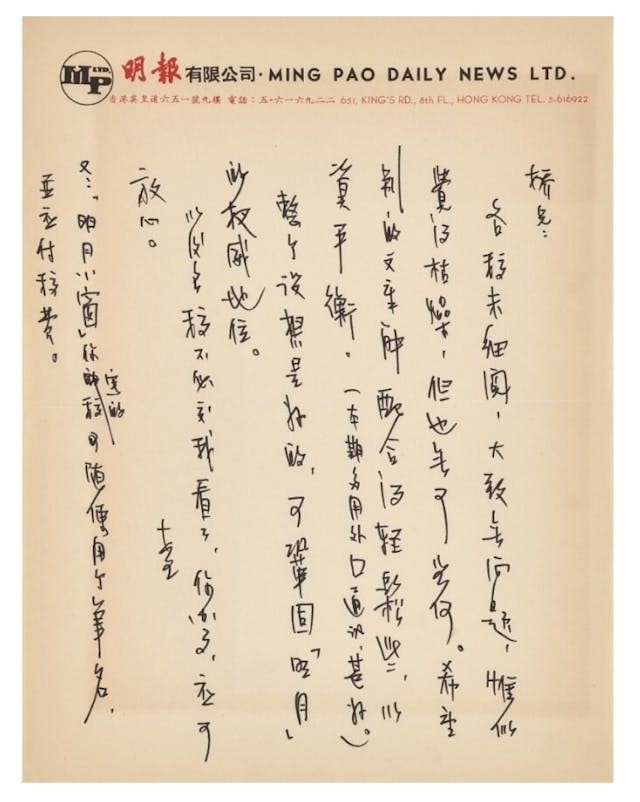 MP LTD.
明報有限公司·MING PAO DAILY NEWS LTD.
香港英皇道六五一號九樓 電話：五·六一六九二二 651, KING'S RD., 8th FL., HONG KONG TEL. 5-616922
橋兄：
各稿未細閱，大致无问題，惟似
覺得枯燥，但也无可奈何。希望
別的文章能配合得輕鬆些，以
資平衡。（本期多用外口通訊，甚好）。
整个設想是好的，可鞏固「明月」
的权威地位。
以後各稿不必交我看了，你办了，应可
放心。
又：「明月小窗」你写的稿可隨便用个筆名，
並应付稿費。